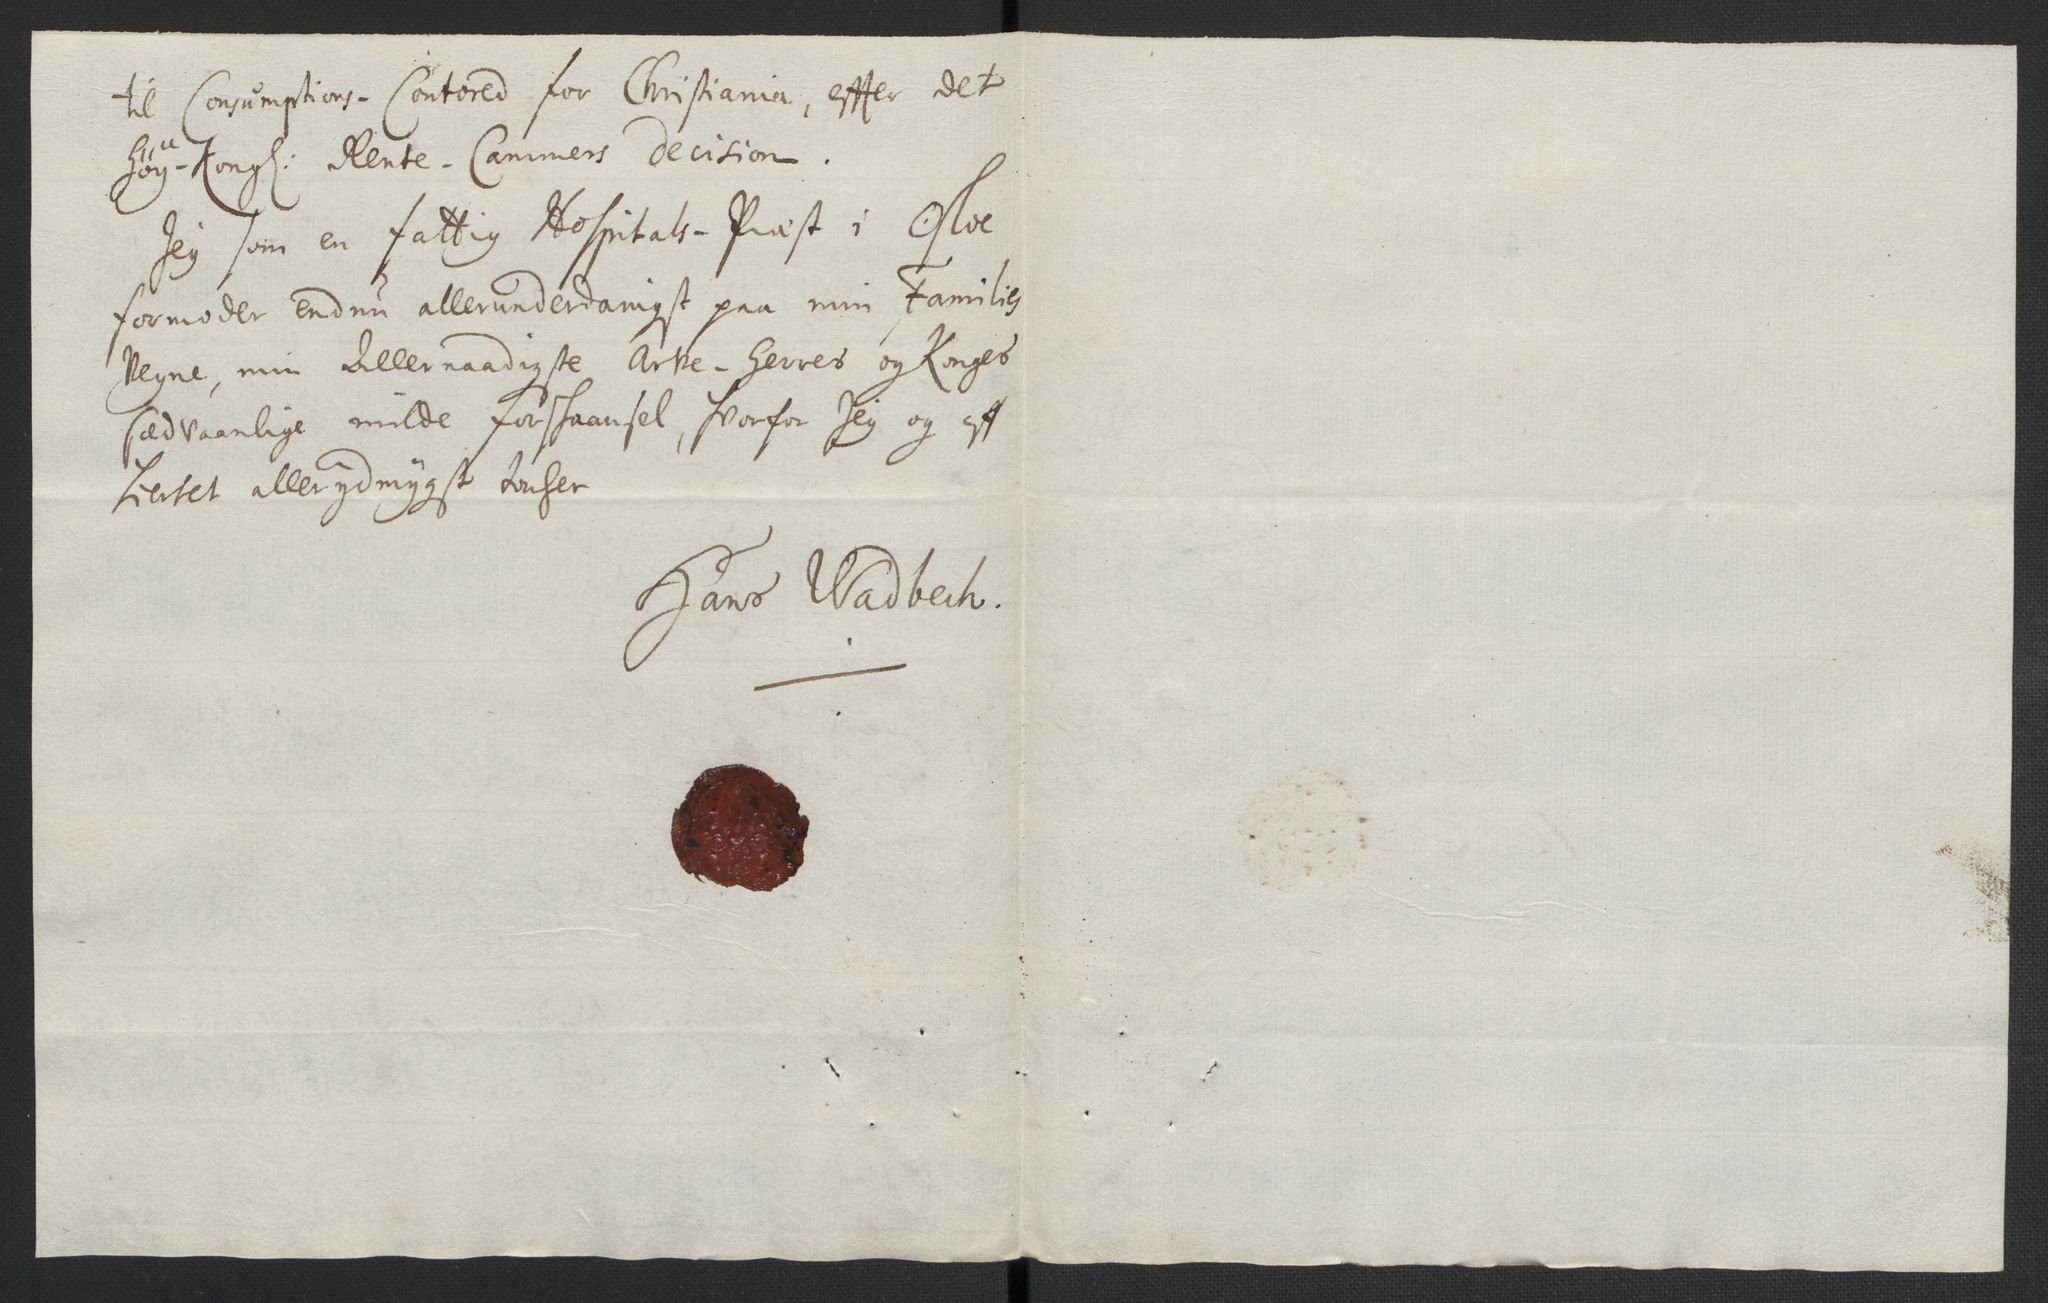 til Consumptions-Contored for Christiania, effter det
Høy-Kongl: Rente-Cammers decision.
Jeg som en fattig Hospitals-Præst i Osloe
formoder endnu allerunderdanigst paa min Families
Vegne, min Allernaadigste Arve-Herres og Konges
sædvaanlige milde forskaansel, hvorfor Jeg og eff
allerydmygst
Hans Wadbech.